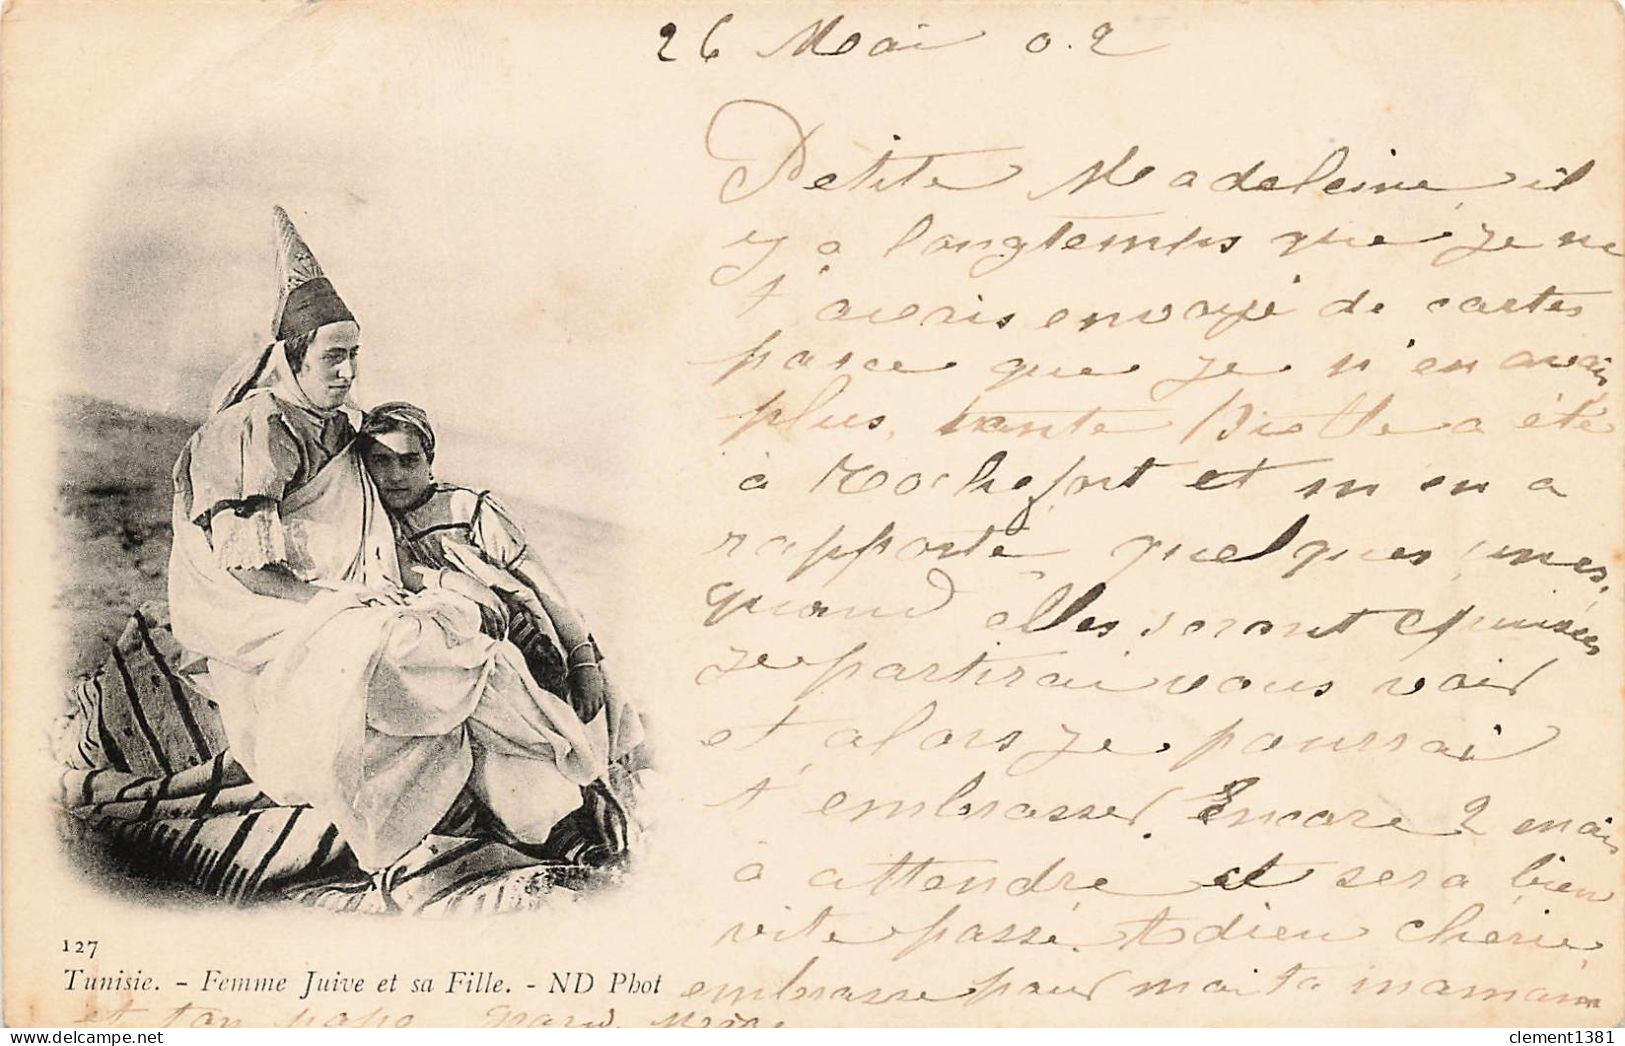 26 Mai 02
Petite Madeleine, il
y a longtemps que je ne
t'avais envoyé de cartes
parce que je n'en avais
plus, tante a été
à Rochefort et m en a
rapporté quelques unes,
quand elles seront épuisées
je partirai vous voir
et alors je pourrai
t'embrasser. Encore 2 mois
à attendre et sera bien
vite passé. Adieu chérie,
embrasse pour moi ta maman
et ton papa grand mère
127
Tunisie. - Femme Juive et sa Fille. - ND Phot
clement1381